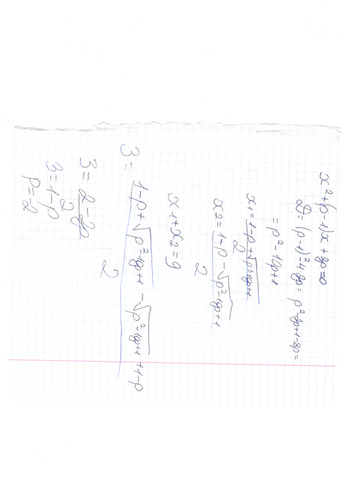 x²+(p-1)x+2p=0
D=(p-1)²-4·2p=p²-2p+1-8p=
=p²-10p+1
x1=1-p+√p²-10p+1
2
x2=1-p-√p²-10p+1
2
x1+x2=9
3=1-p+√p²-10p+1-√p²-10p+1+1-p
2
3=2-2p
2
3=1-p
p=-2